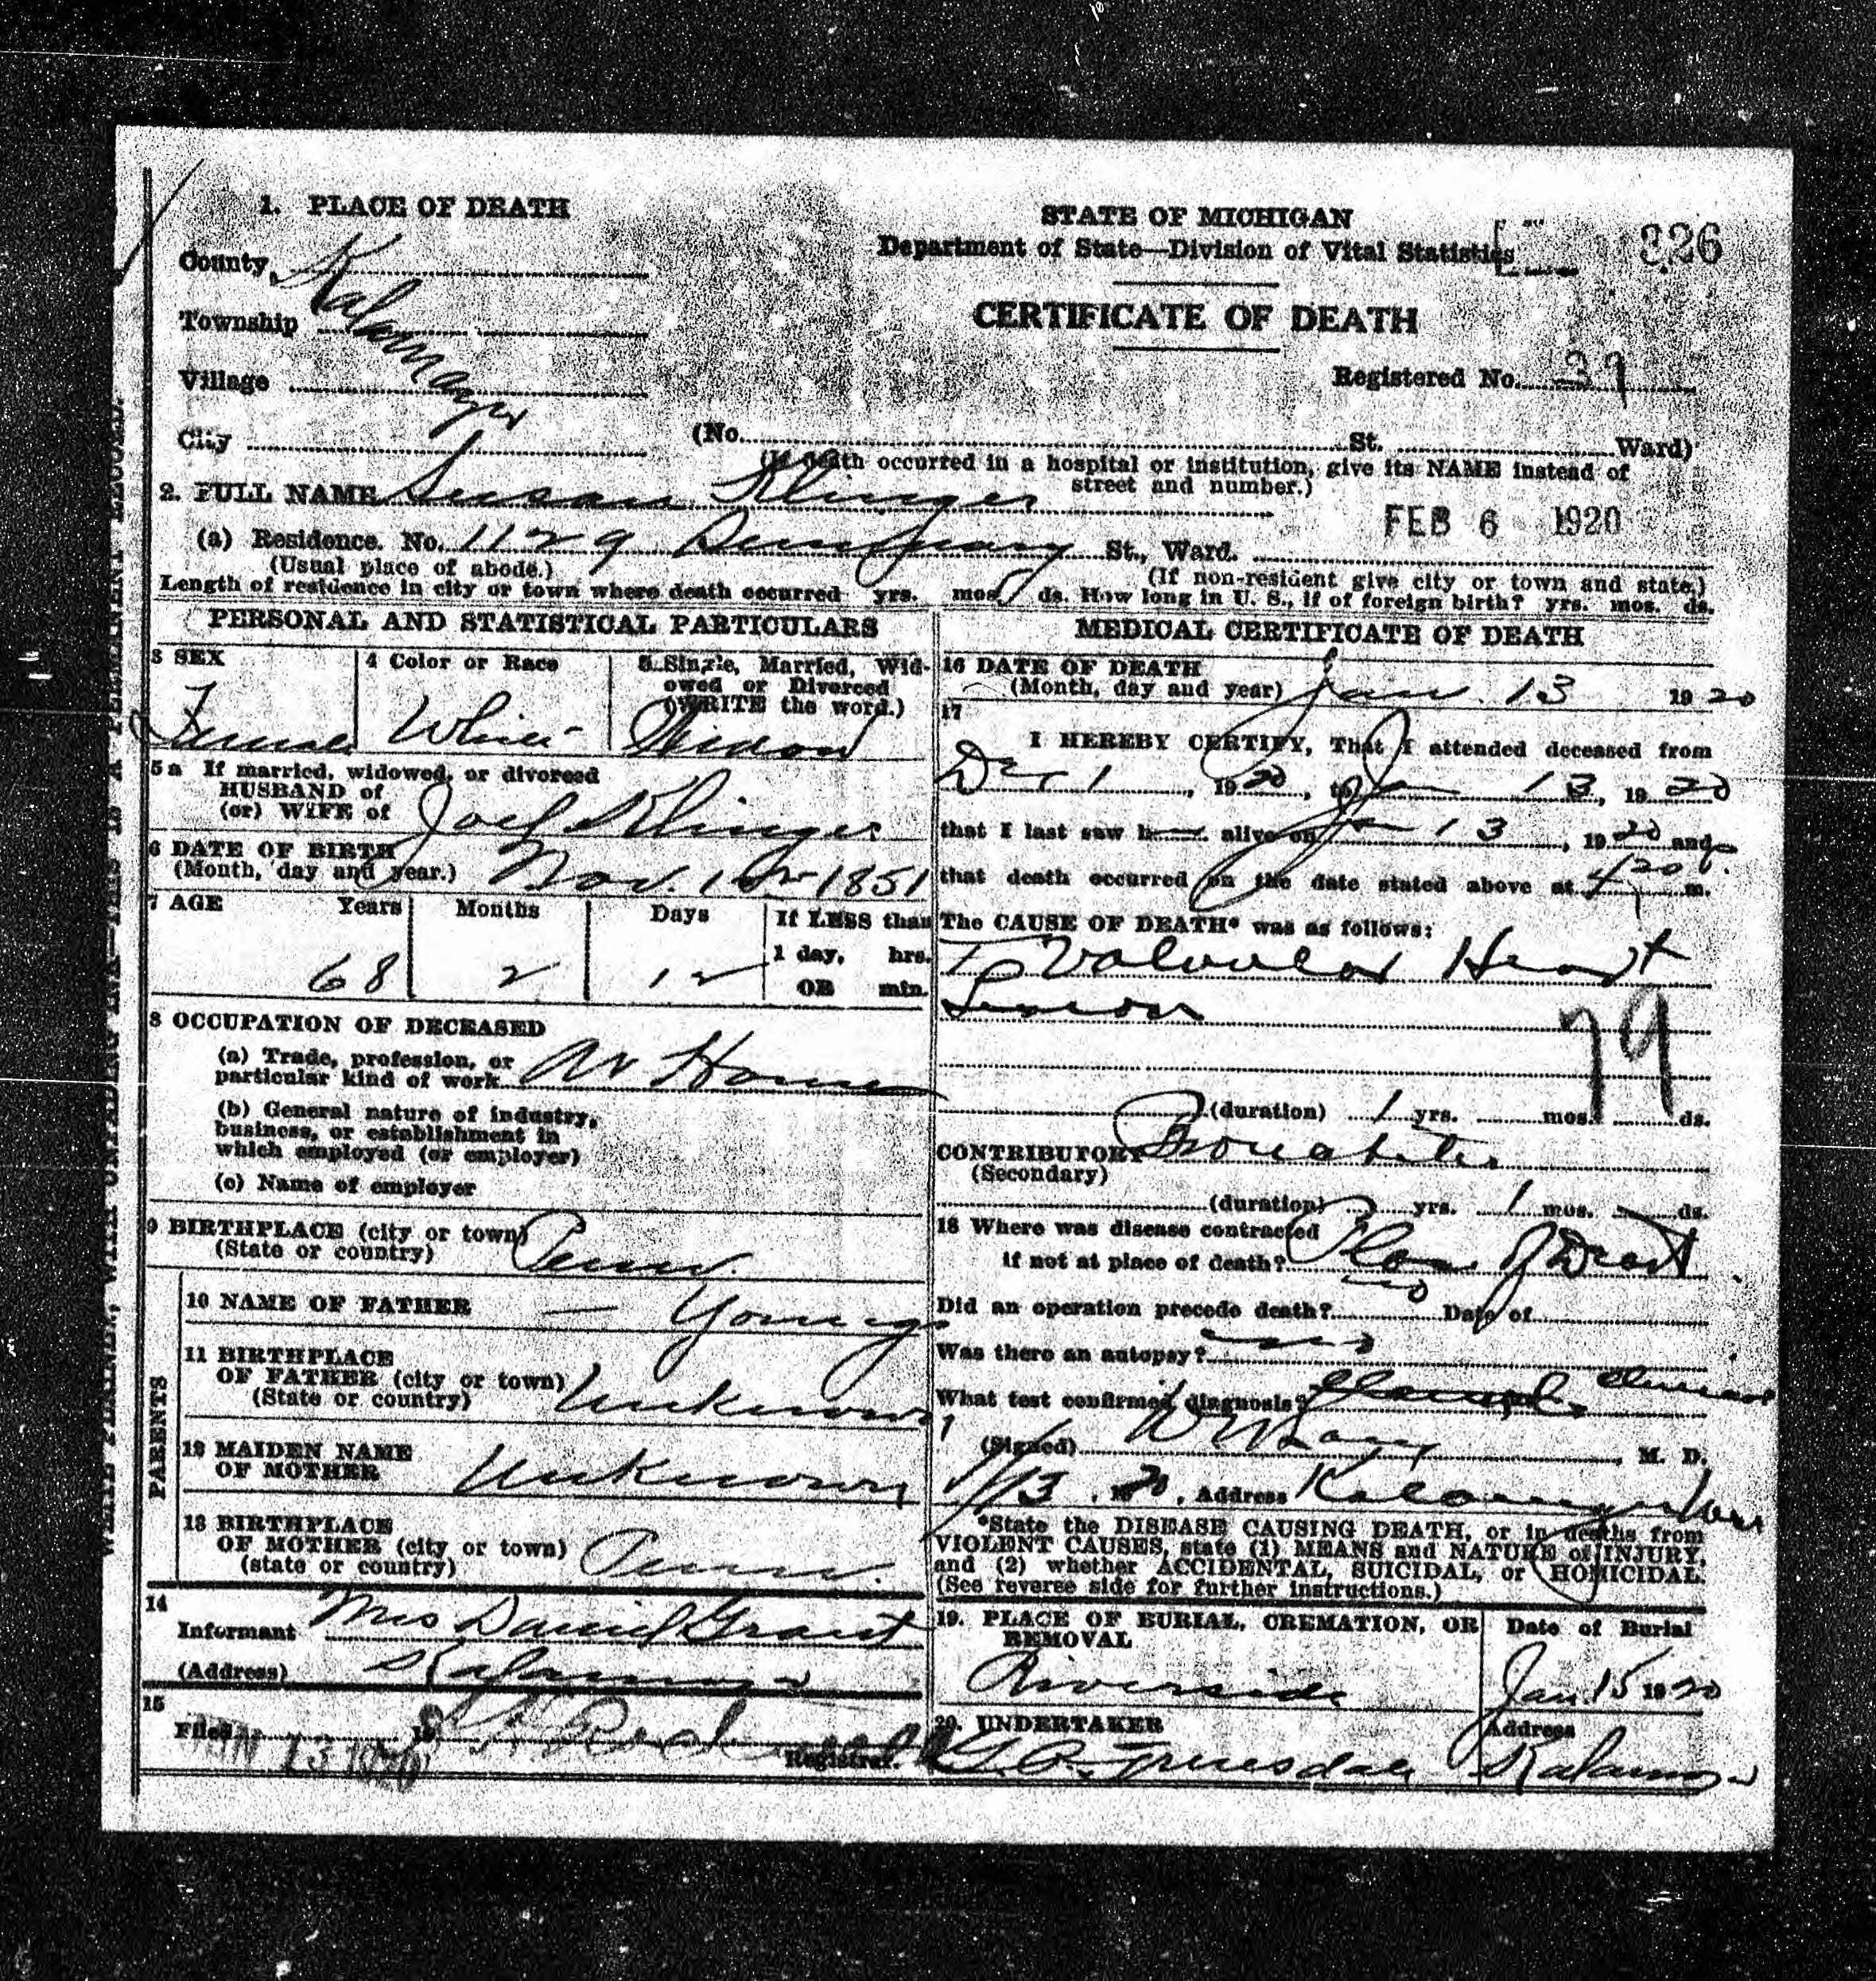 1. PLACE OF DEATH
County Kalamazoo
Township
Village
City
STATE OF MICHIGAN
Department of State—Division of Vital Statistics
326
CERTIFICATE OF DEATH
Registered No. 39
(No. St. Ward)
(If death occurred in a hospital or institution, give its NAME instead of
street and number.)
2. FULL NAME Susan Klinger
FEB 6 1920
(a) Residence. No. 1129 St., Ward.
(Usual place of abode.)
(If non-resident give city or town and state.)
Length of residence in city or town where death occurred yrs. mos. ds. How long in U. S., if of foreign birth? yrs. mos. ds.
PERSONAL AND STATISTICAL PARTICULARS
3 SEX
Female
4 Color or Race
White
5. Single, Married, Wid-
owed or Divorced
(WRITE the word.)
Widow
5a If married, widowed, or divorced
HUSBAND of
(or) WIFE of Joel Klinger
6 DATE OF BIRTH
(Month, day and year.) Nov. 1851
7 AGE Years Months Days
68 2 12
If LESS than
1 day, hrs.
OR min.
8 OCCUPATION OF DECEASED
(a) Trade, profession, or
particular kind of work At Home
(b) General nature of industry,
business, or establishment in
which employed (or employer)
(c) Name of employer
9 BIRTHPLACE (city or town)
(State or country) Penn.
PARENTS
10 NAME OF FATHER — Young
11 BIRTHPLACE
OF FATHER (city or town)
(State or country) Unknown
12 MAIDEN NAME
OF MOTHER Unknown
13 BIRTHPLACE
OF MOTHER (city or town)
(state or country) Penn.
14
Informant Mrs Daniel Grant
(Address) Kalamazoo
15
Filed JAN 13 1920 19
Registrar.
MEDICAL CERTIFICATE OF DEATH
16 DATE OF DEATH
(Month, day and year) Jan. 13 1920
17
I HEREBY CERTIFY, That I attended deceased from
Dec 1, 1920, to Jan 13, 1920
that I last saw h alive on Jan 13, 1920 and
that death occurred on the date stated above at 4 20 P. m.
The CAUSE OF DEATH* was as follows:
Valvular Heart
Lesion
79
(duration) 1 yrs. mos. ds.
CONTRIBUTORY Bronchitis
(Secondary)
(duration) yrs. 1 mos. ds.
18 Where was disease contracted
if not at place of death? Place of Death
Did an operation precede death? no Date of
Was there an autopsy? no
What test confirmed diagnosis?
(Signed) M. D.
1/13, 1920, Address Kalamazoo
*State the DISEASE CAUSING DEATH, or in deaths from
VIOLENT CAUSES, state (1) MEANS and NATURE of INJURY,
and (2) whether ACCIDENTAL, SUICIDAL, or HOMICIDAL.
(See reverse side for further instructions.)
19. PLACE OF BURIAL, CREMATION, OR
REMOVAL
Riverside
Date of Burial
Jan. 15 1920
20. UNDERTAKER
Truesdale
Address
Kalamazoo